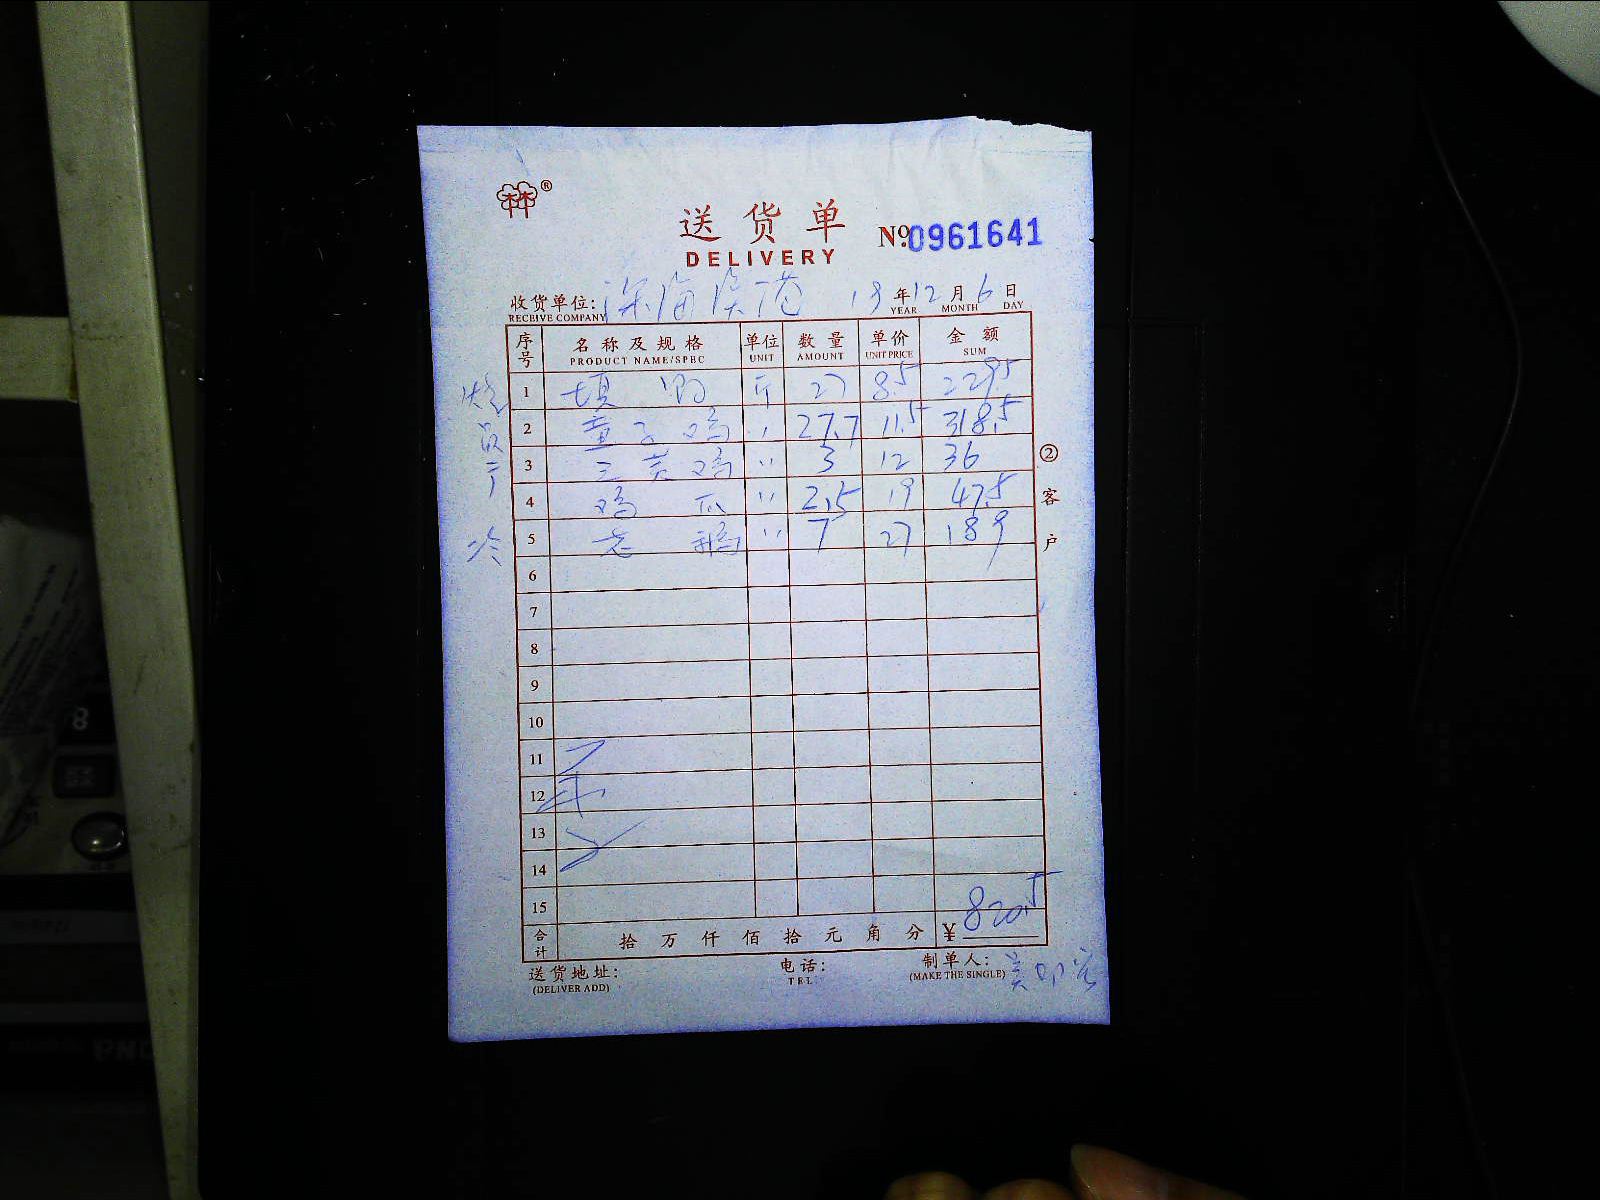 林®
送货单 №0961641
DELIVERY
收货单位: 深海渔港 19年12月6日
RECEIVE COMPANY YEAR MONTH DAY
序号 名称及规格 单位 数量 单价 金额
PRODUCT NAME/SPEC UNIT AMOUNT UNIT PRICE SUM
1 填鸭 斤 27 8.5 229.5
2 童子鸡 〃 27.7 11.5 318.5
3 三黄鸡 〃 3 12 36
4 鸡爪 〃 2.5 19 47.5
5 老鹅 〃 7 27 189
6
7
8
9
10
11
12
13
14
15
合计 拾万仟佰拾元角分 ¥820.5
送货地址: 电话: 制单人:
(DELIVER ADD) TEL (MAKE THE SINGLE)
②客户